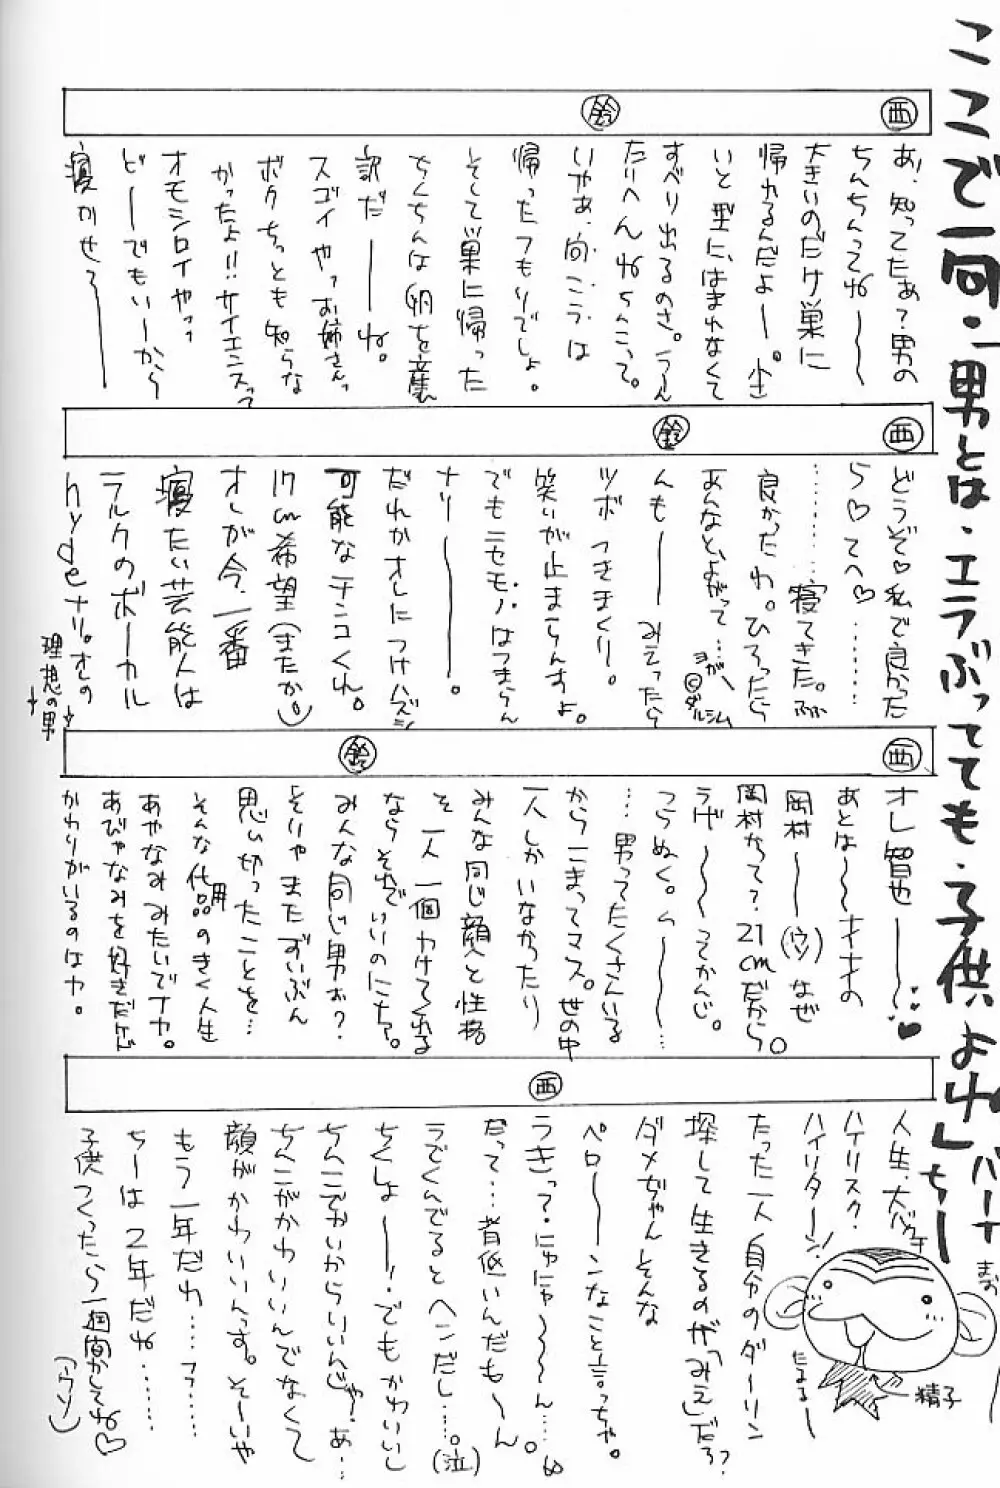 ここで一句・「男とは・エラぶってても・子供よね」ちー
バーナ
西
あ、知ってたぁ?男の
ちんちんってね〜〜
大きいのだけ巣に
帰れるんだよー。小さ
いと型にはまれなくて
すべり出るのさ。うーん
たいへんねちんこって。
鈴
いやぁ、向こうは
帰ったつもりでしょ。
そして巣に帰った
ちんちんは卵を産む
訳だーーね。
スゴイやっお姉さんっ
ボクちっとも知らな
かったよ!!サイエンスって
オモシロイやっっ
どーーでもいーから
寝かせろーーー
西
どうぞ♡私で良かった
ら♡てへ♡…………
………寝てきた。ふふ
良かったわ。ひろったら
あんなと、よがって…
ヨガー
©ダルシム
んもーー みえったら
鈴
ツボつきまくり。
笑いが止まらんすよ。
でもニセモノはつまらん
ナリーーー。
だれかオレにつけハズシ
可能なチンコくれ。
17cm希望(またか。)
オレが今、一番
寝たい芸能人は
ラルクのボーカル
hydeナリ。オレの
理想の男
西
オレ智也ーーー♥
あとは〜〜オオオの
岡村ーー(ウソ)なぜ
岡村かって?21cmだから。
うげ〜〜ってかんじ。
つらぬく。ム〜〜〜
…男ってたくさんいる
からこまってマス。世の中
一人しかいなかったり
みんな同じ顔と性格
そ 一人一個わけてくれる
ならそれでいいのにナァ。
鈴
みんな同じ男ぉ?
そりゃまたずいぶん
思い切ったことを…
そんな代用品のきく人生
あやなみみたいでナァ。
あびゃなみを好きだけど
かわりがいるのはヤ。
西
人生、大バクチ
ハイリスク・
ハイリターン!
たった一人自分のダーリン
探して生きるのが「みえ」だろ?
ダメぢゃんそんな
ペローーンなこと言っちゃ。
うきっっ・にゃにゃ〜〜〜ん…。
だって…背低いんだも〜ん
ラでくんでるとヘンだし…。(泣)
ちくしょーー!でもかわいいし
ちんこでかいからいいんじゃ?あ…
ちんこがかわいいんでなくて
顔がかわいいんっす。そーいや
もう一年だわ……フフ……
ちーは2年だね………
子供つくったら一個貸してね♡
(ウソ)
まお
たるるー
精子